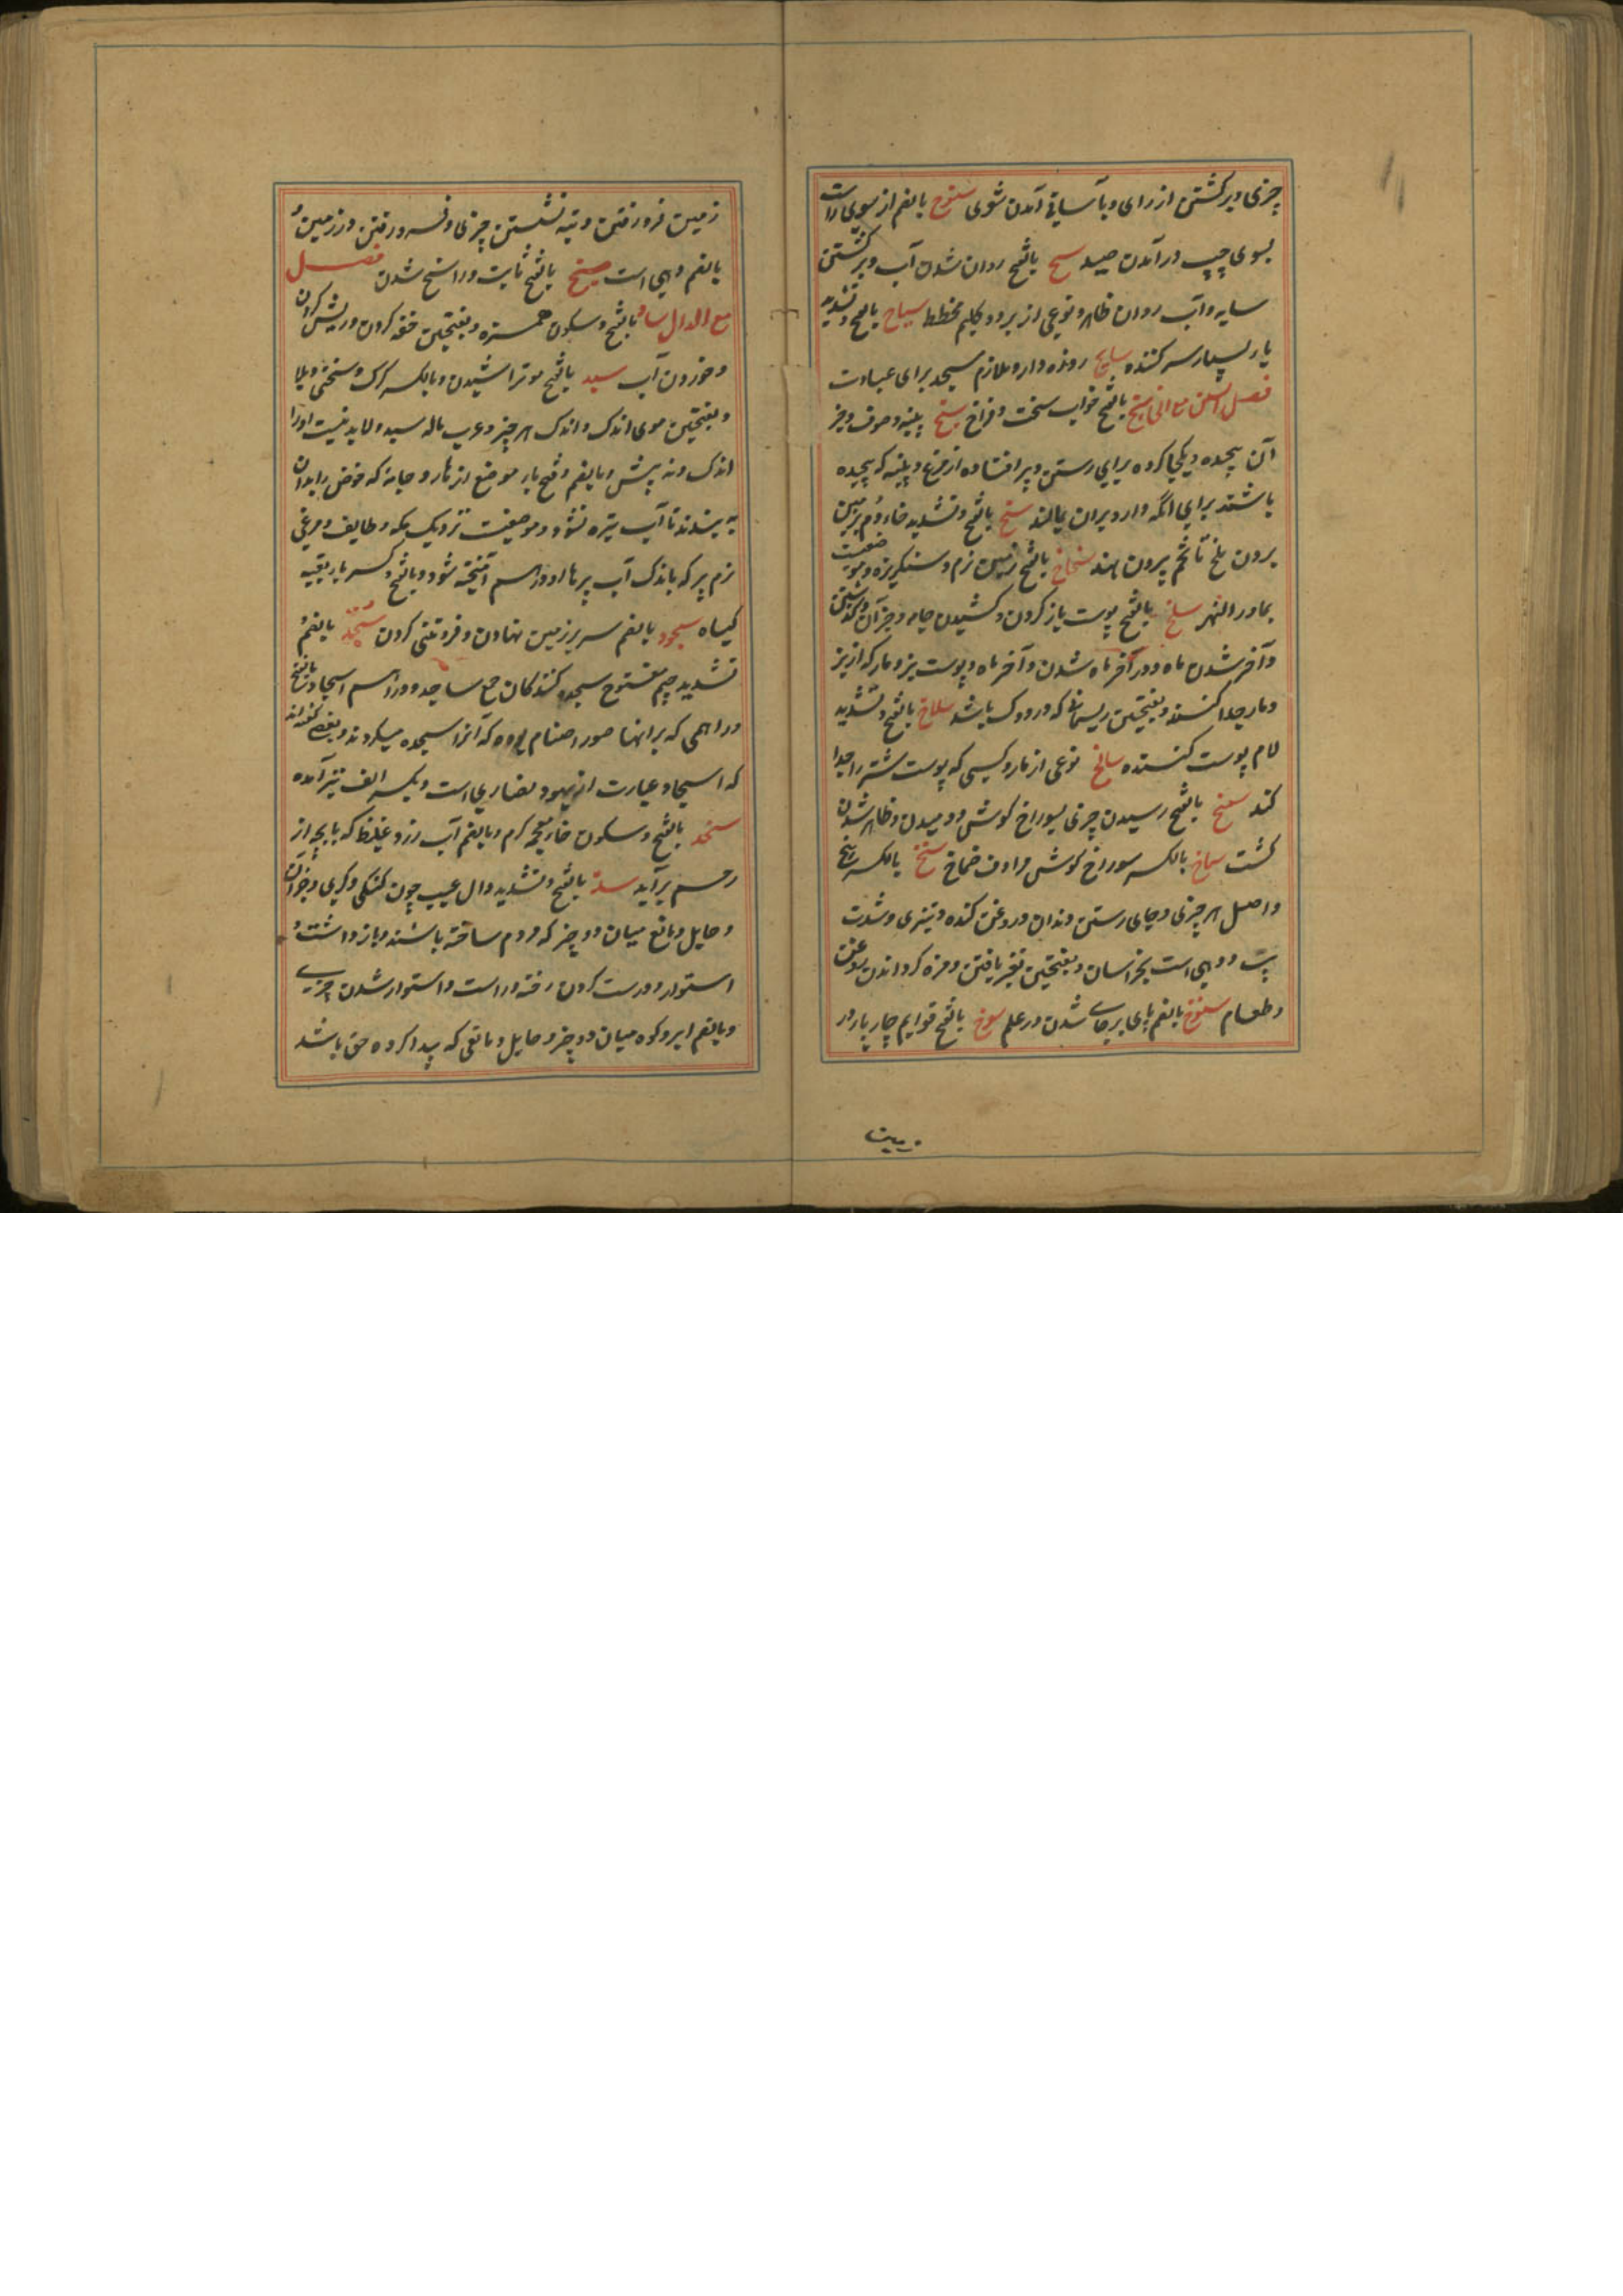 چیزی و برگشتن از رای و بآسانی آمدن شوی سنوح بالضم از سوی راست
بسوی چپ درآمدن صید سیح بالفتح روان شدن آب و برگشتن
سایه و آب روان ظاهر و نوعی از برود و گلیم مخطط سیاح بالفتح و تشدید
یا بسیار سیر کننده سایح روزه دار و ملازم مسجد برای عبادت
فصل السین مع الخا سبخ بالفتح خواب سخت و فراخ سبیخ پنبه و صوف و جز
آن پیچیده و یکجا کرده برای رستن و پر افتاده از مرغ و پنبه که پیچیده
باشند برای آنکه دارو بران بمالند سخ بالفتح و تشدید خا دم بر زمین
بردن ملخ تا تخم بیرون نهد سخاخ بالفتح زمین نرم و سنگریزه و موضعیست
بماوراءالنهر سلخ بالفتح پوست باز کردن و کشیدن جامه و جز آن و گذشتن
و آخر شدن ماه و در آخر ماه شدن و آخر ماه و پوست بز و مار که از بز
و مار جدا کنند و بفتحتین ریسمانی که در دوک باشد سلاخ بالفتح و تشدید
لام پوست کننده سالخ نوعی از مار و کسی که پوست شتر را جدا
کند سمخ بالفتح رسیدن چیزی بسوراخ گوش و دمیدن و ظاهر شدن
کشت سماخ بالکسر سوراخ گوش مرادف صماخ سنخ بالکسر بیخ
و اصل هر چیزی و جای رستن دندان و روغن گنده و تیزی و شدت
تب و دهی است بخراسان و بفتحتین تغیر یافتن و مزه گردانیدن روغن
و طعام سنوخ بالضم پای برجای شدن در علم سوخ بالفتح قوایم چارپا در
زمین
زمین فرو رفتن و ته نشستن چیزی و فرو رفتن در زمین و
بالضم دهی است سیخ بالفتح ثابت و راسخ شدن فصل
مع الدال ساد بالفتح و سکون همزه و بفتحتین خفه کردن و ریش کران
و خوردن آب سبد بالفتح مو تراشیدن و بالکسر گرگ و سختی و بلا
و بفتحتین موی اندک و اندک هر چیز و عرب ماله سبد و لا لبد نیست او را
اندک و نه بیش و بالضم و فتح با موضع از مار و جامه که حوض را بدان
به بندند تا آب تیره نشود و موضعیست نزدیک مکه و طایف و مرغی
نرم پر که باندک آب پرها او درهم آمیخته شود و بالفتح و کسر با بقیه
گیاه سجود بالضم سر بر زمین نهادن و فروتنی کردن سجّد بالضم و
تشدید جیم مفتوح سجده کنندگان جمع ساجد و دراهم اسجاد بالفتح
دراهمی که بر آنها صور اصنام بوده که آنرا سجده میکردند و بعضی گفته اند
که اسجاد عبارت از یهود و نصاری است و بکسر الف نیز آمده
سخد بالفتح و سکون خاء معجمه گرم و بالضم آب زرد و غلیظ که با بچه از
رحم برآید سدّ بالفتح و تشدید دال عیب چون گنگی و کری و جز آن
و حایل و مانع میان دو چیز که مردم ساخته باشند و بازداشت و
استوار و درست کردن رخنه و راست و استوار شدن چیزی
و بالضم ابر و کوه میان دو چیز و حایل و مانعی که پیدا کرده حق باشد